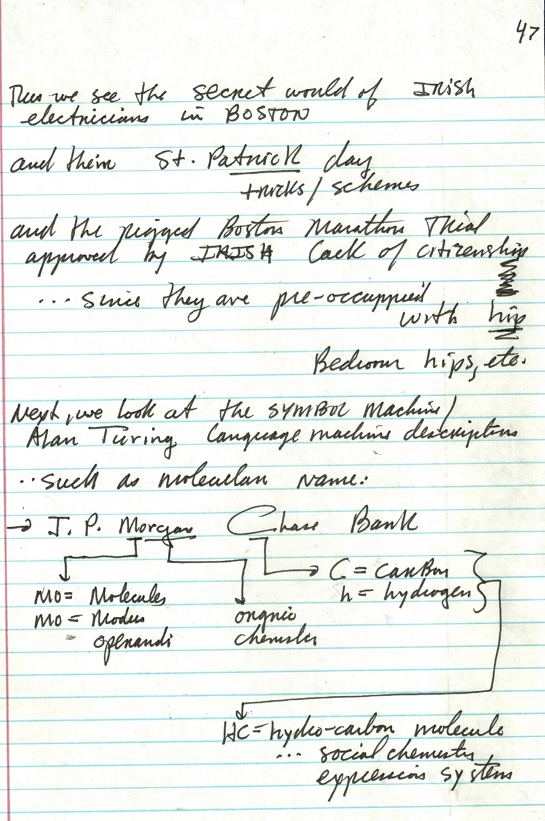 47
Thus we see the secret would of IRISH
electricians in BOSTON
and their St. Patrick day
tricks/schemes
and the rigged Boston Marathon Trial
approved by IRISH Lack of citizenship
... since they are pre-occuppied
with hip
Bedroom hips, etc.
Next, we look at the SYMBOL Machine/
Alan Turing Language machine descriptions
..such as molecular name:
→ J. P. Morgan Chase Bank
C = carbon
h = hydrogen
Mo = Molecules
Mo = Modus
operandi
organic
chemistry
HC = hydro-carbon molecule
... social chemistry
expression system